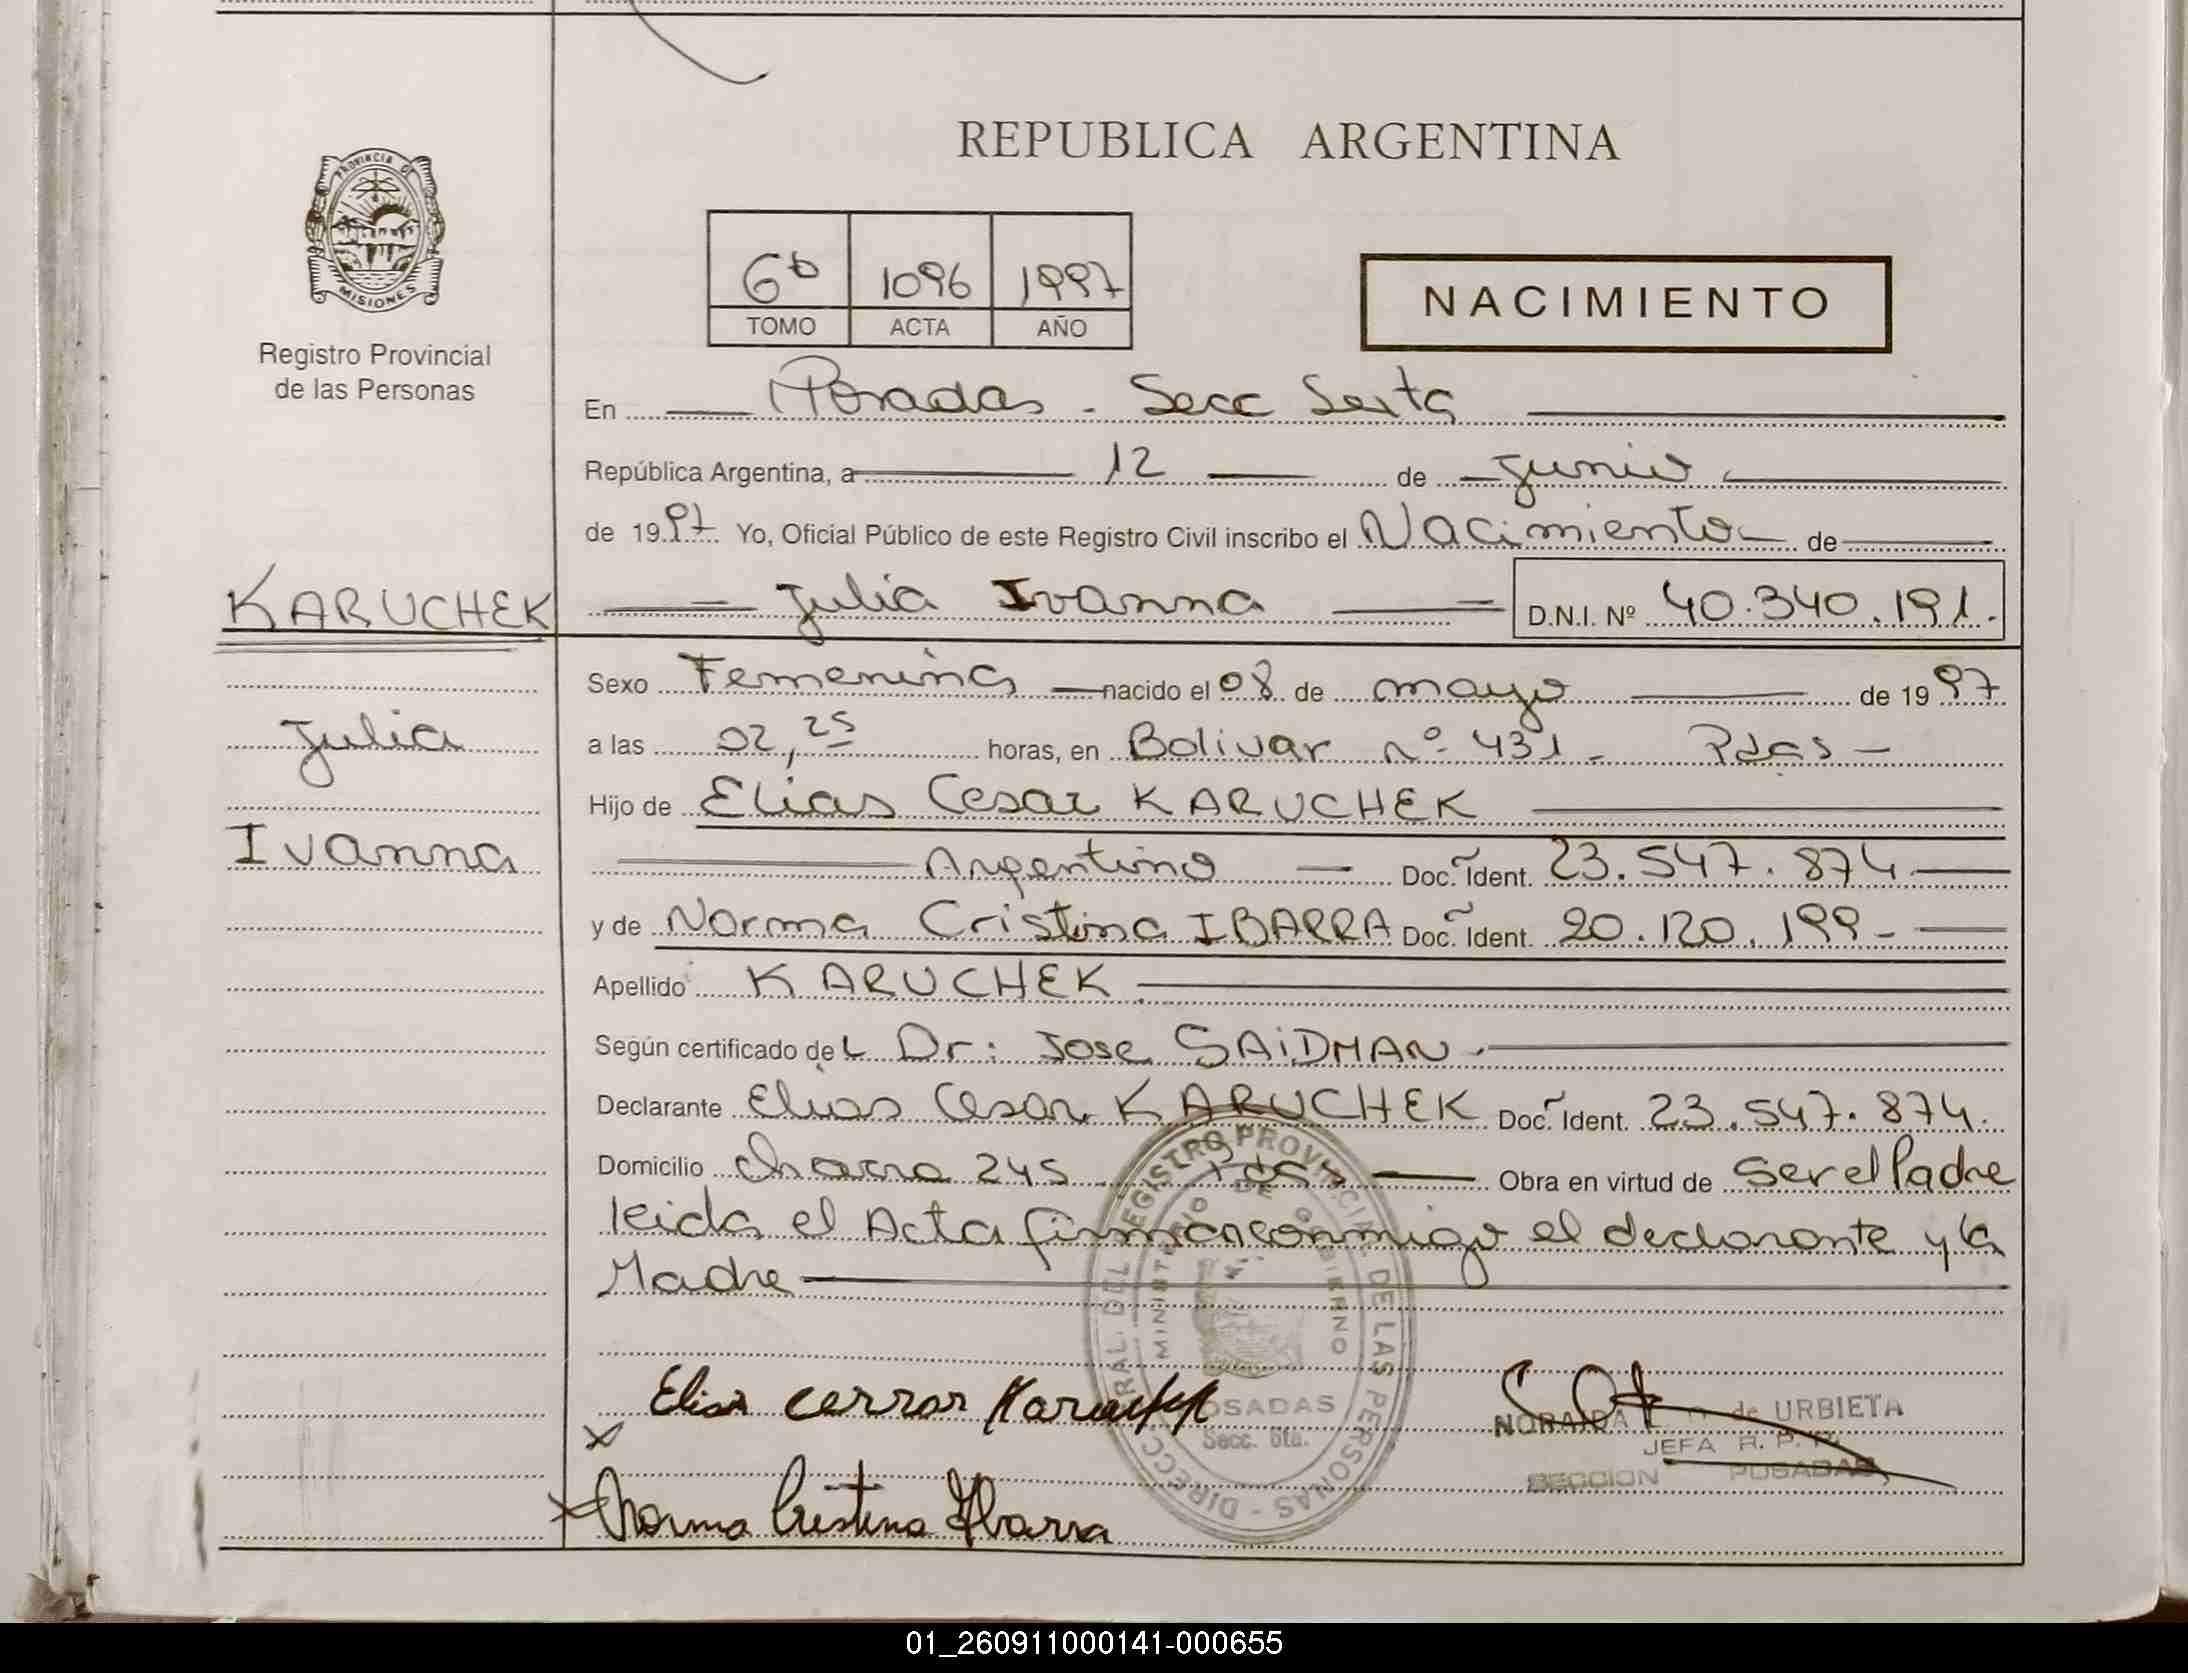 REPUBLICA ARGENTINA
PROVINCIA DE
MISIONES
Registro Provincial
de las Personas
6º 1096 1997
TOMO ACTA AÑO
NACIMIENTO
En Posadas - Secc Sexta
República Argentina, a 12 de Junio
de 1997 Yo, Oficial Público de este Registro Civil inscribo el Nacimiento de
KARUCHEK
Julia Ivanna D.N.I. Nº 40.340.191.
Sexo Femenina nacido el 08 de mayo de 1997
Julia
a las 02,25 horas, en Bolivar nº 431 - Pdas -
Hijo de Elias Cesar KARUCHEK
Ivanna
Argentino Doc. Ident. 23.547.874
y de Norma Cristina IBARRA Doc. Ident. 20.120.199 -
Apellido KARUCHEK
Según certificado del Dr: Jose SAIDMAN.
Declarante Elias Cesar KARUCHEK Doc. Ident. 23.547.874.
Domicilio Chacra 245 Pdas Obra en virtud de ser el Padre
leida el Acta firman conmigo el declarante y la
Madre
DIRECC. GRAL. DEL REGISTRO PROVINCIAL DE LAS PERSONAS
MINISTERIO DE GOBIERNO
POSADAS
Secc. 6ta.
Norma Cristina Ibarra
NORAIDA de URBIETA
JEFA R. P. P.
SECCION POSADAS
01_260911000141-000655